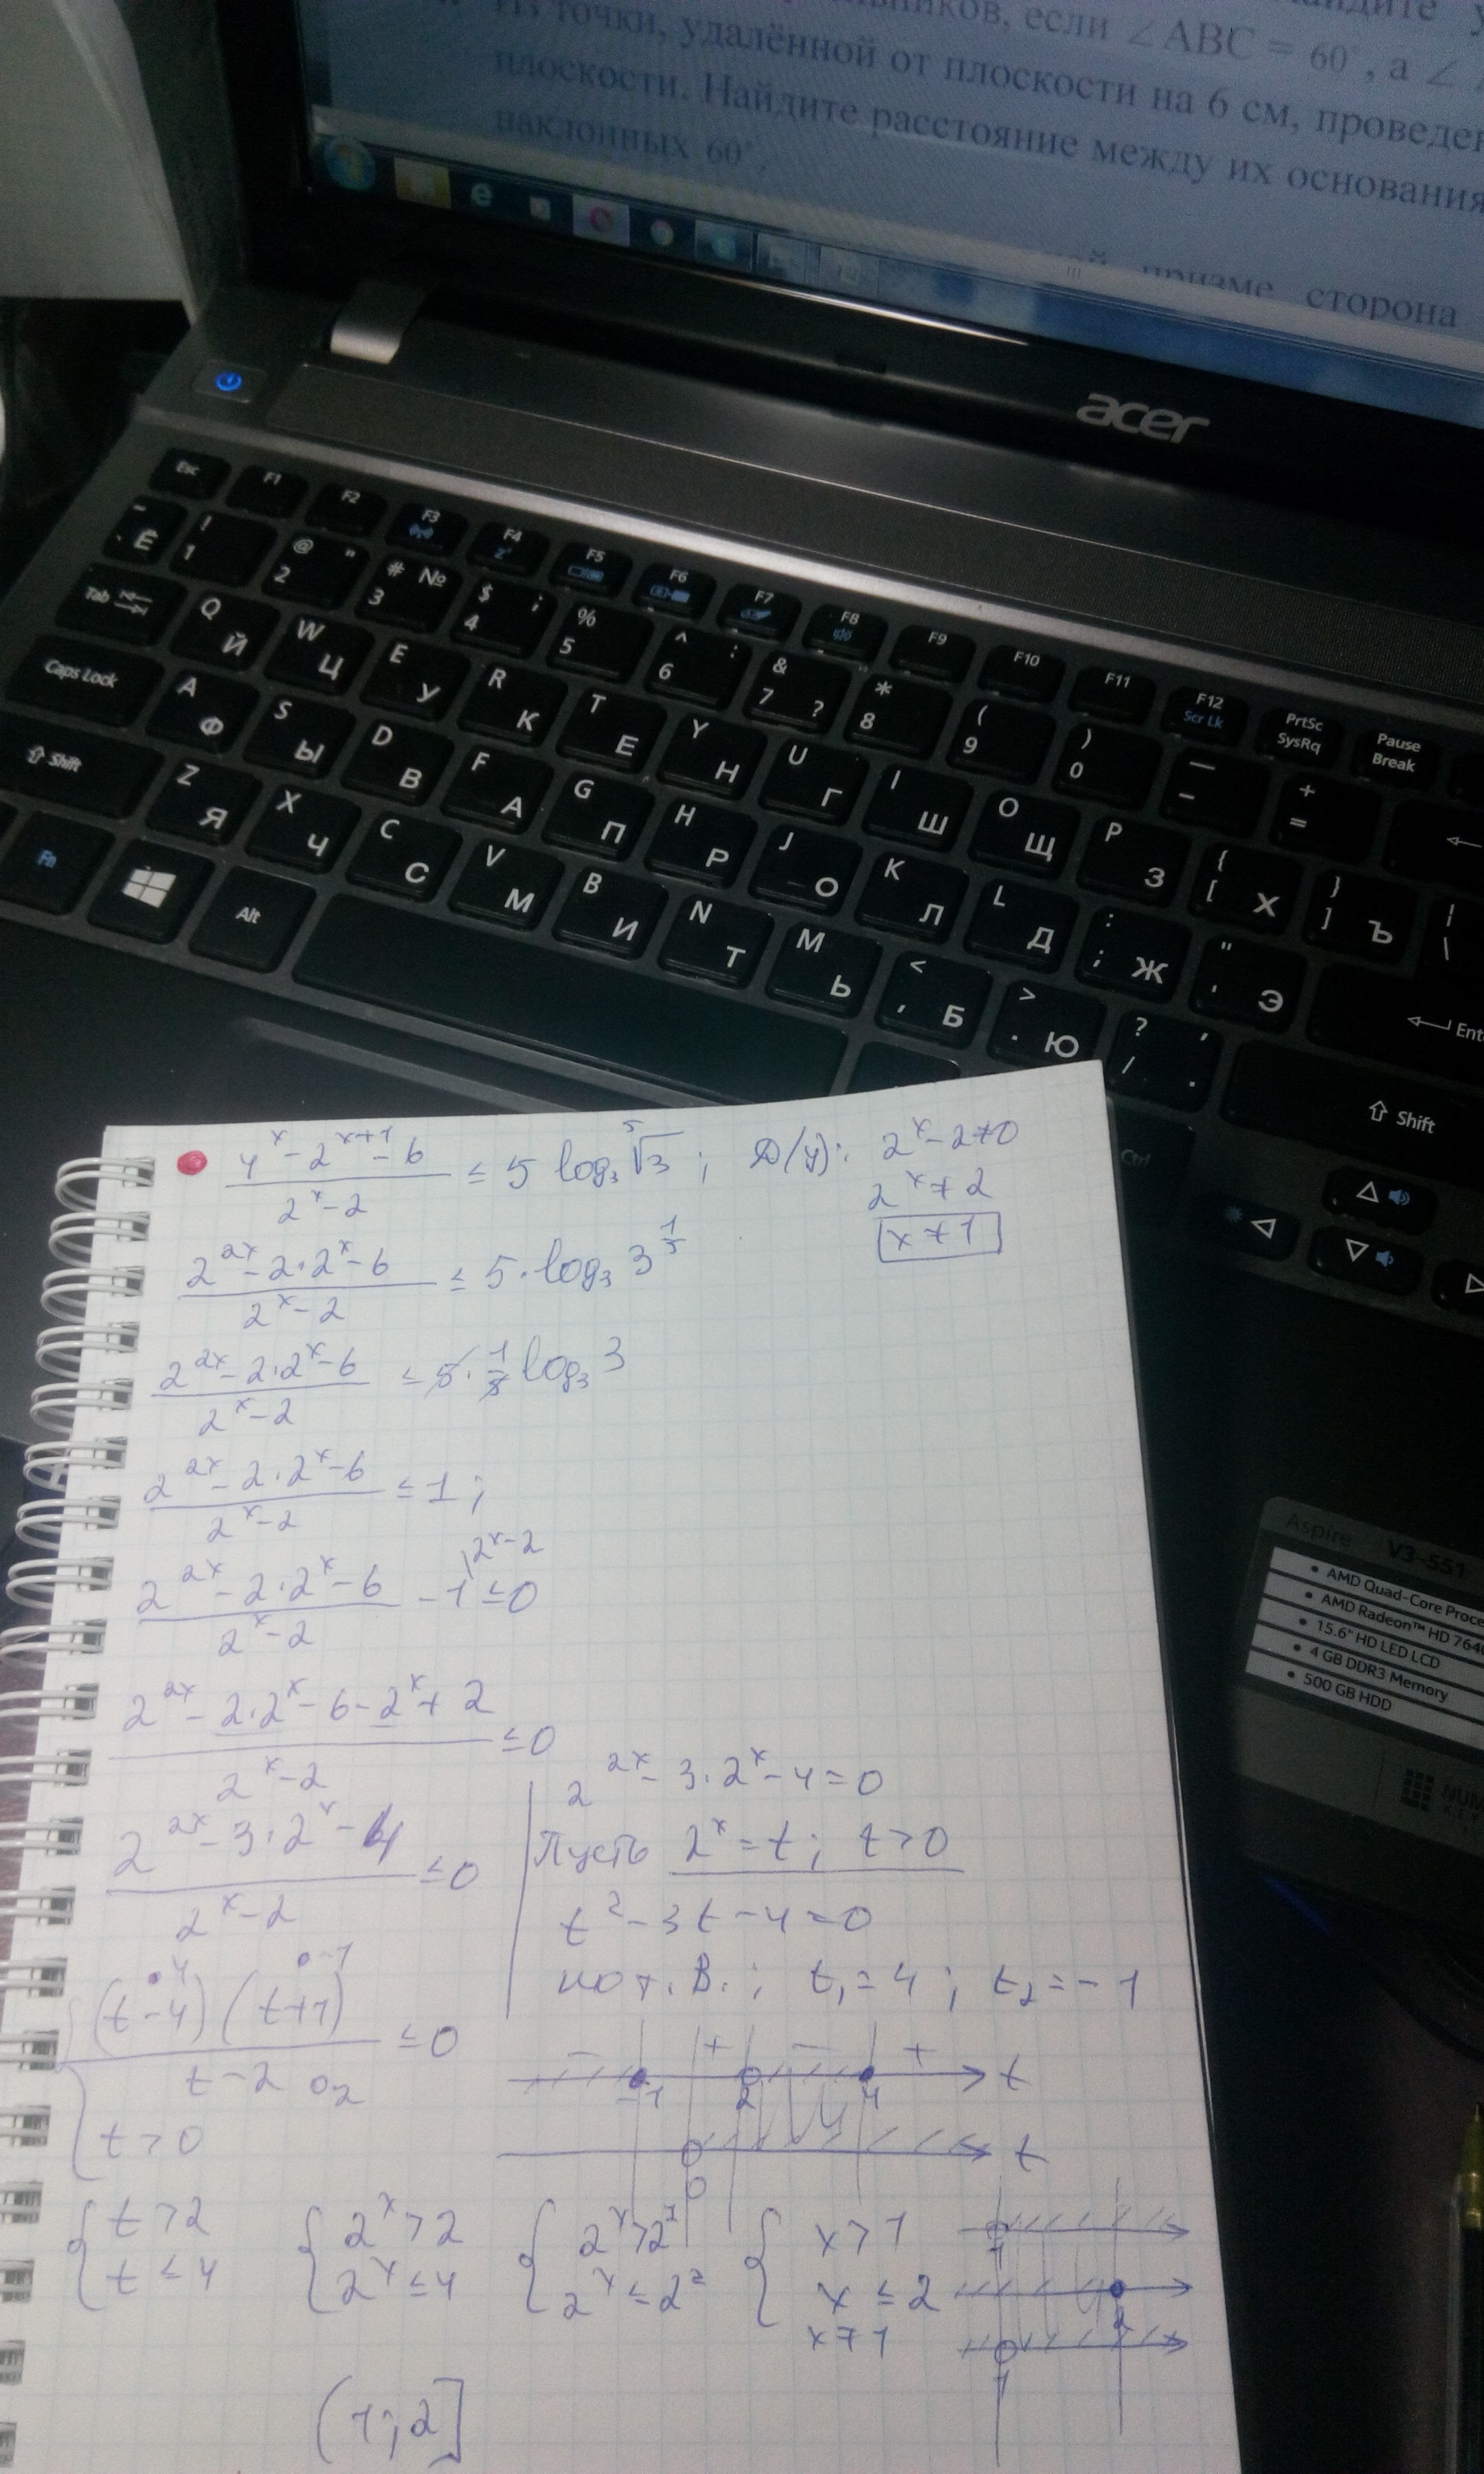 ников, если ∠ABC = 60°, а ∠
Из точки, удалённой от плоскости на 6 см, проведен
плоскости. Найдите расстояние между их основания
наклонных 60°.
призме сторона
acer
Esc F1 F2 F3 F4 F5 F6 F7 F8 F9 F10 F11 F12 Scr Lk PrtSc SysRq Pause Break
~ Ё ! 1 @ " 2 # № 3 $ ; 4 % 5 ^ : 6 & 7 ? * 8 ( 9 ) 0 — - + =
Tab Q Й W Ц E У R К T Е Y Н U Г I Ш O Щ P З { [ Х } ] Ъ | \
Caps Lock A Ф S Ы D В F А G П H Р J О K Л L Д : ; Ж " ' Э Ente
Shift Z Я X Ч C С V М B И N Т M Ь < , Б > . Ю ? / , . Shift
Fn Alt Ctrl
Aspire V3-551
• AMD Quad-Core Proce
• AMD Radeon™ HD 7640
• 15.6" HD LED LCD
• 4 GB DDR3 Memory
• 500 GB HDD
NUM
(4^x - 2^(x+1) - 6)/(2^x - 2) ≤ 5 log₃ ⁵√3 ; D(y): 2^x - 2 ≠ 0
2^x ≠ 2
x ≠ 1
(2^(2x) - 2·2^x - 6)/(2^x - 2) ≤ 5·log₃ 3^(1/5)
(2^(2x) - 2·2^x - 6)/(2^x - 2) ≤ 5·1/5 log₃ 3
(2^(2x) - 2·2^x - 6)/(2^x - 2) ≤ 1;
(2^(2x) - 2·2^x - 6)/(2^x - 2) - 1 \2^x - 2 ≤ 0
(2^(2x) - 2·2^x - 6 - 2^x + 2)/(2^x - 2) ≤ 0
(2^(2x) - 3·2^x - 4)/(2^x - 2) ≤ 0
2^(2x) - 3·2^x - 4 = 0
Пусть 2^x = t; t > 0
t² - 3t - 4 = 0
по т. В.; t₁ = 4; t₂ = -1
• 4 • -1
((t - 4)(t + 1))/(t - 2) ≤ 0
○ 2
t > 0
- + - + t
-1 2 4
t
0
{ t > 2 { 2^x > 2 { 2^x > 2^1 { x > 1
t ≤ 4 2^x ≤ 4 2^x ≤ 2^2 x ≤ 2
x ≠ 1
1
2
1
(1; 2]